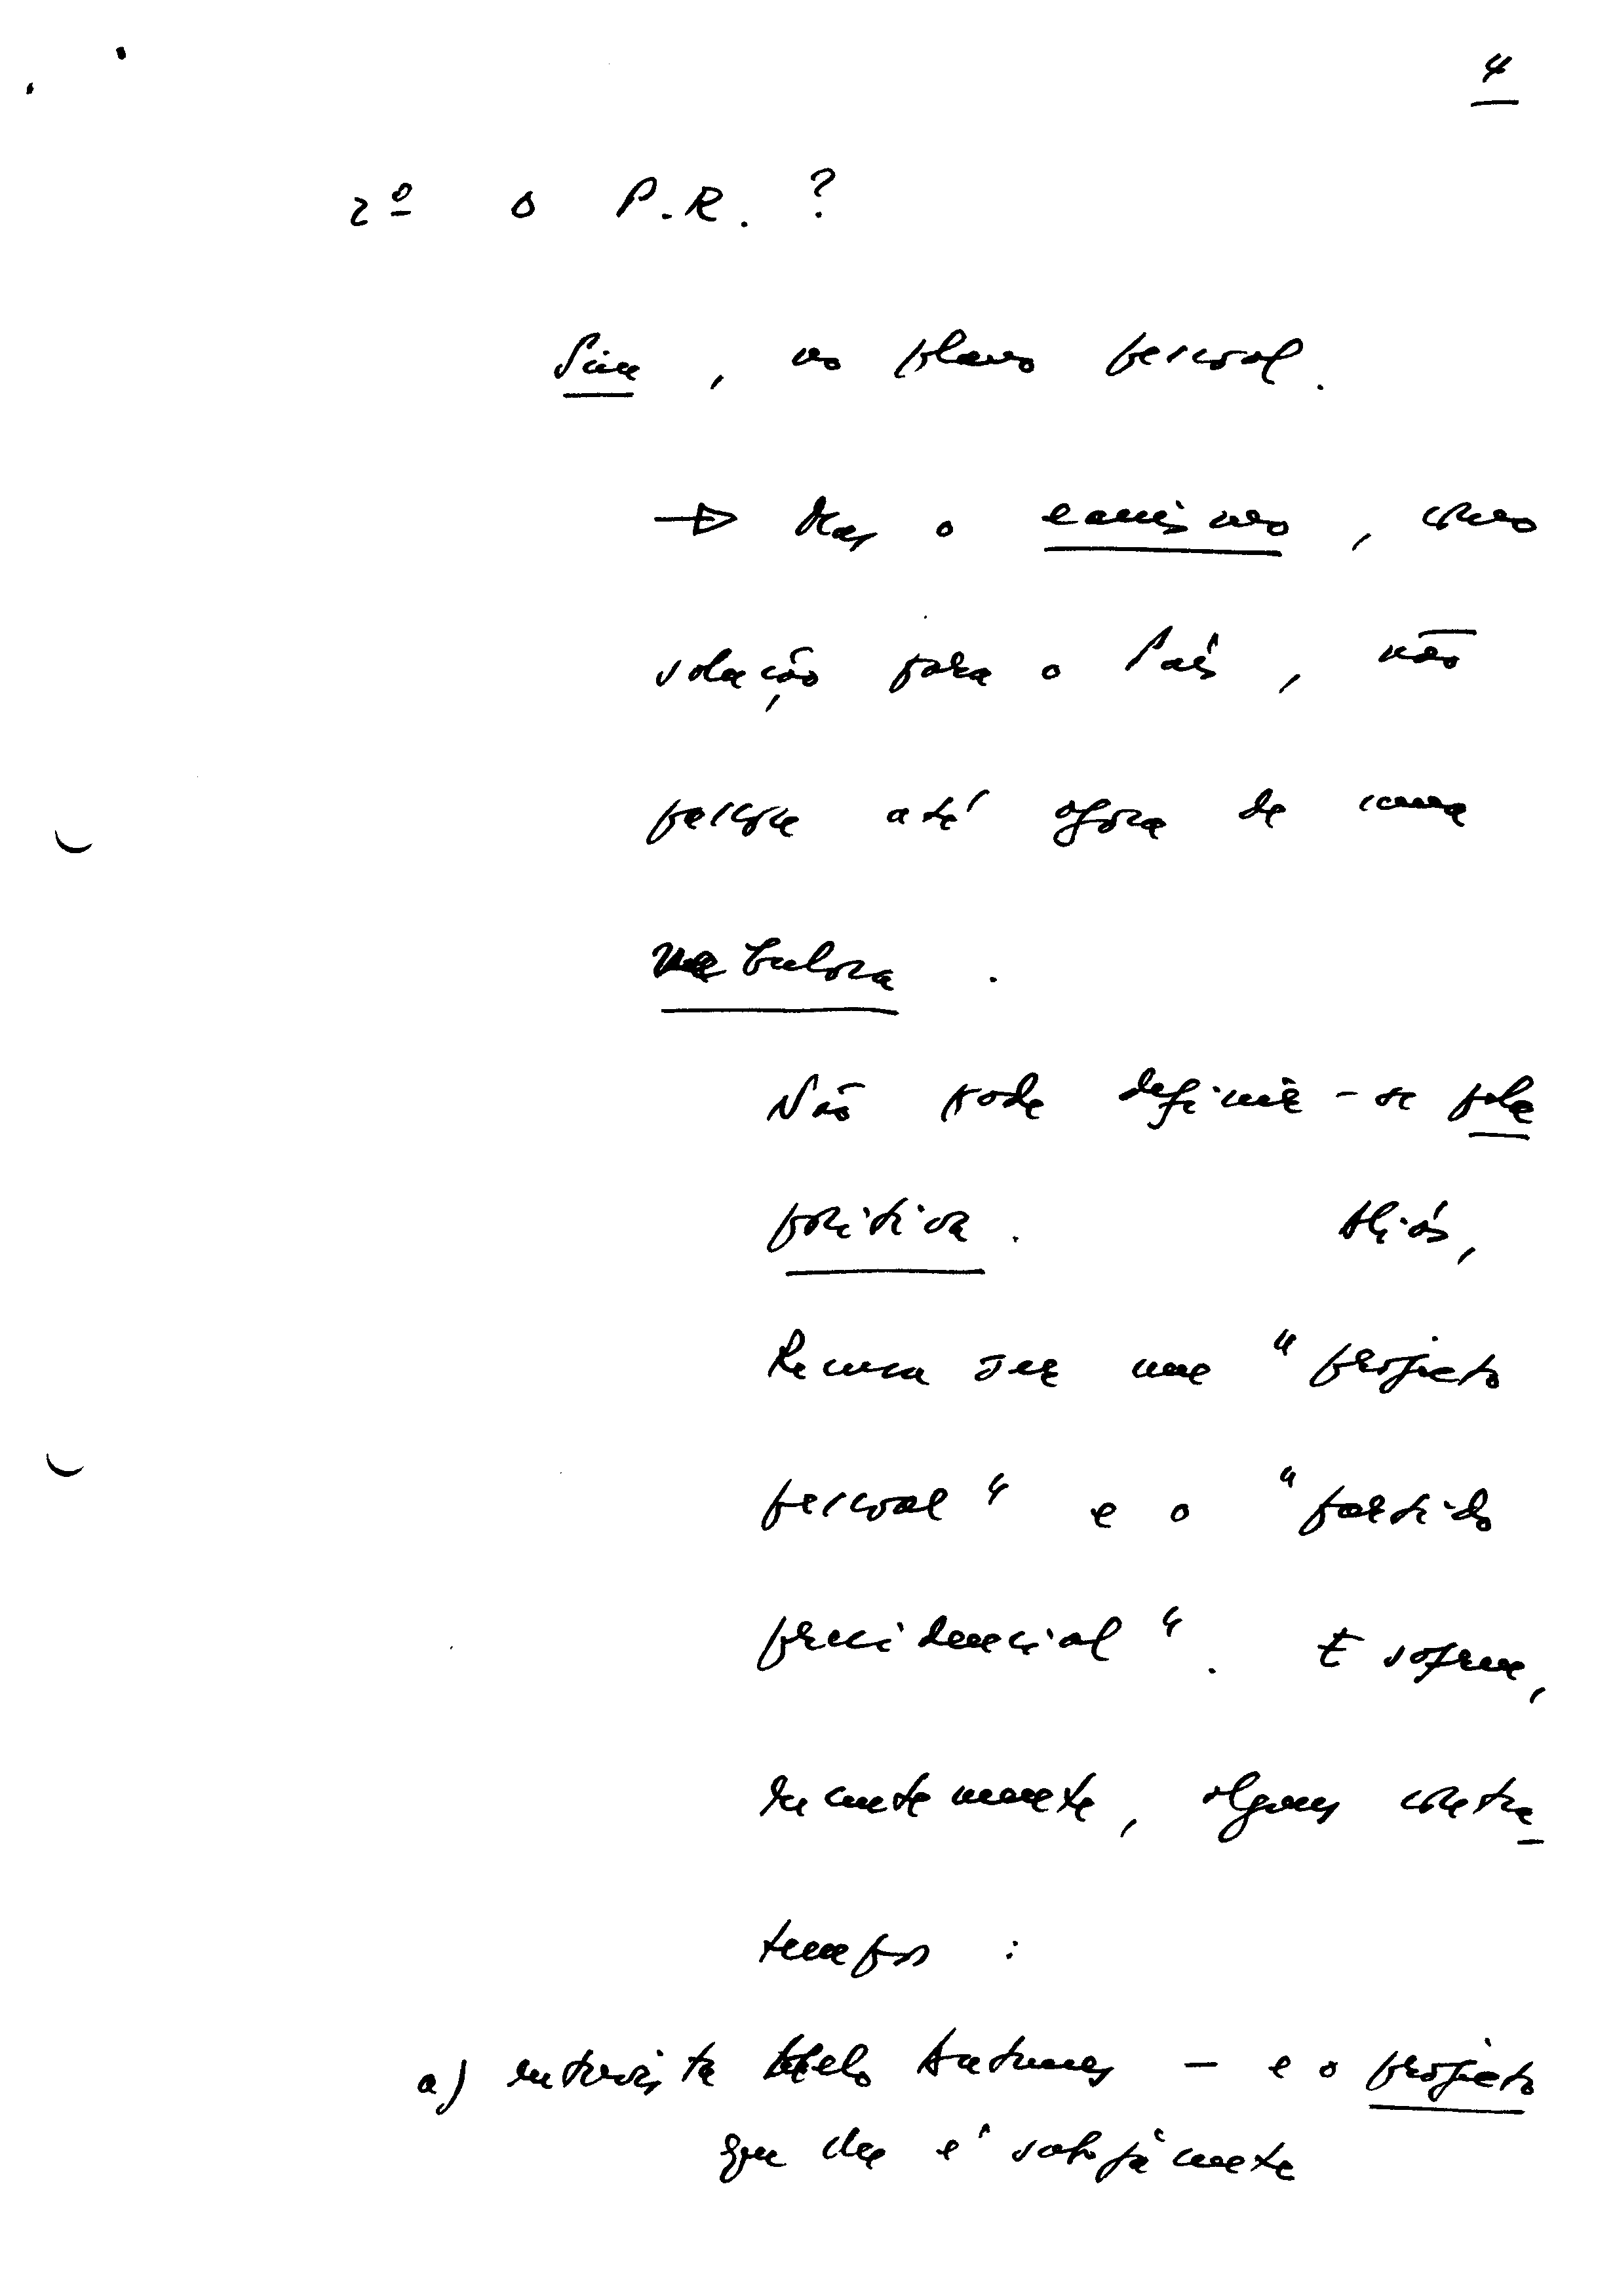 4
2º o P.R. ?
Sim, no plano pessoal.
→ Mas o eanismo, como
solução para o País, não
passou até agora de uma
nebulosa.
Não pode definir-se pela
política. Aliás,
Recusa ser um "projecto
pessoal" e o "partido
presidencial". E sofreu,
recentemente, alguns contra-
tempos :
a) entrevista Melo Antunes — e o projecto
que lhe é subjacente